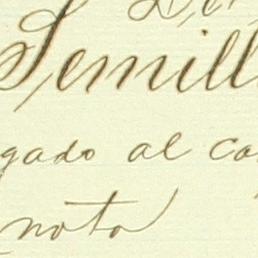 Semill
gado al co
nota